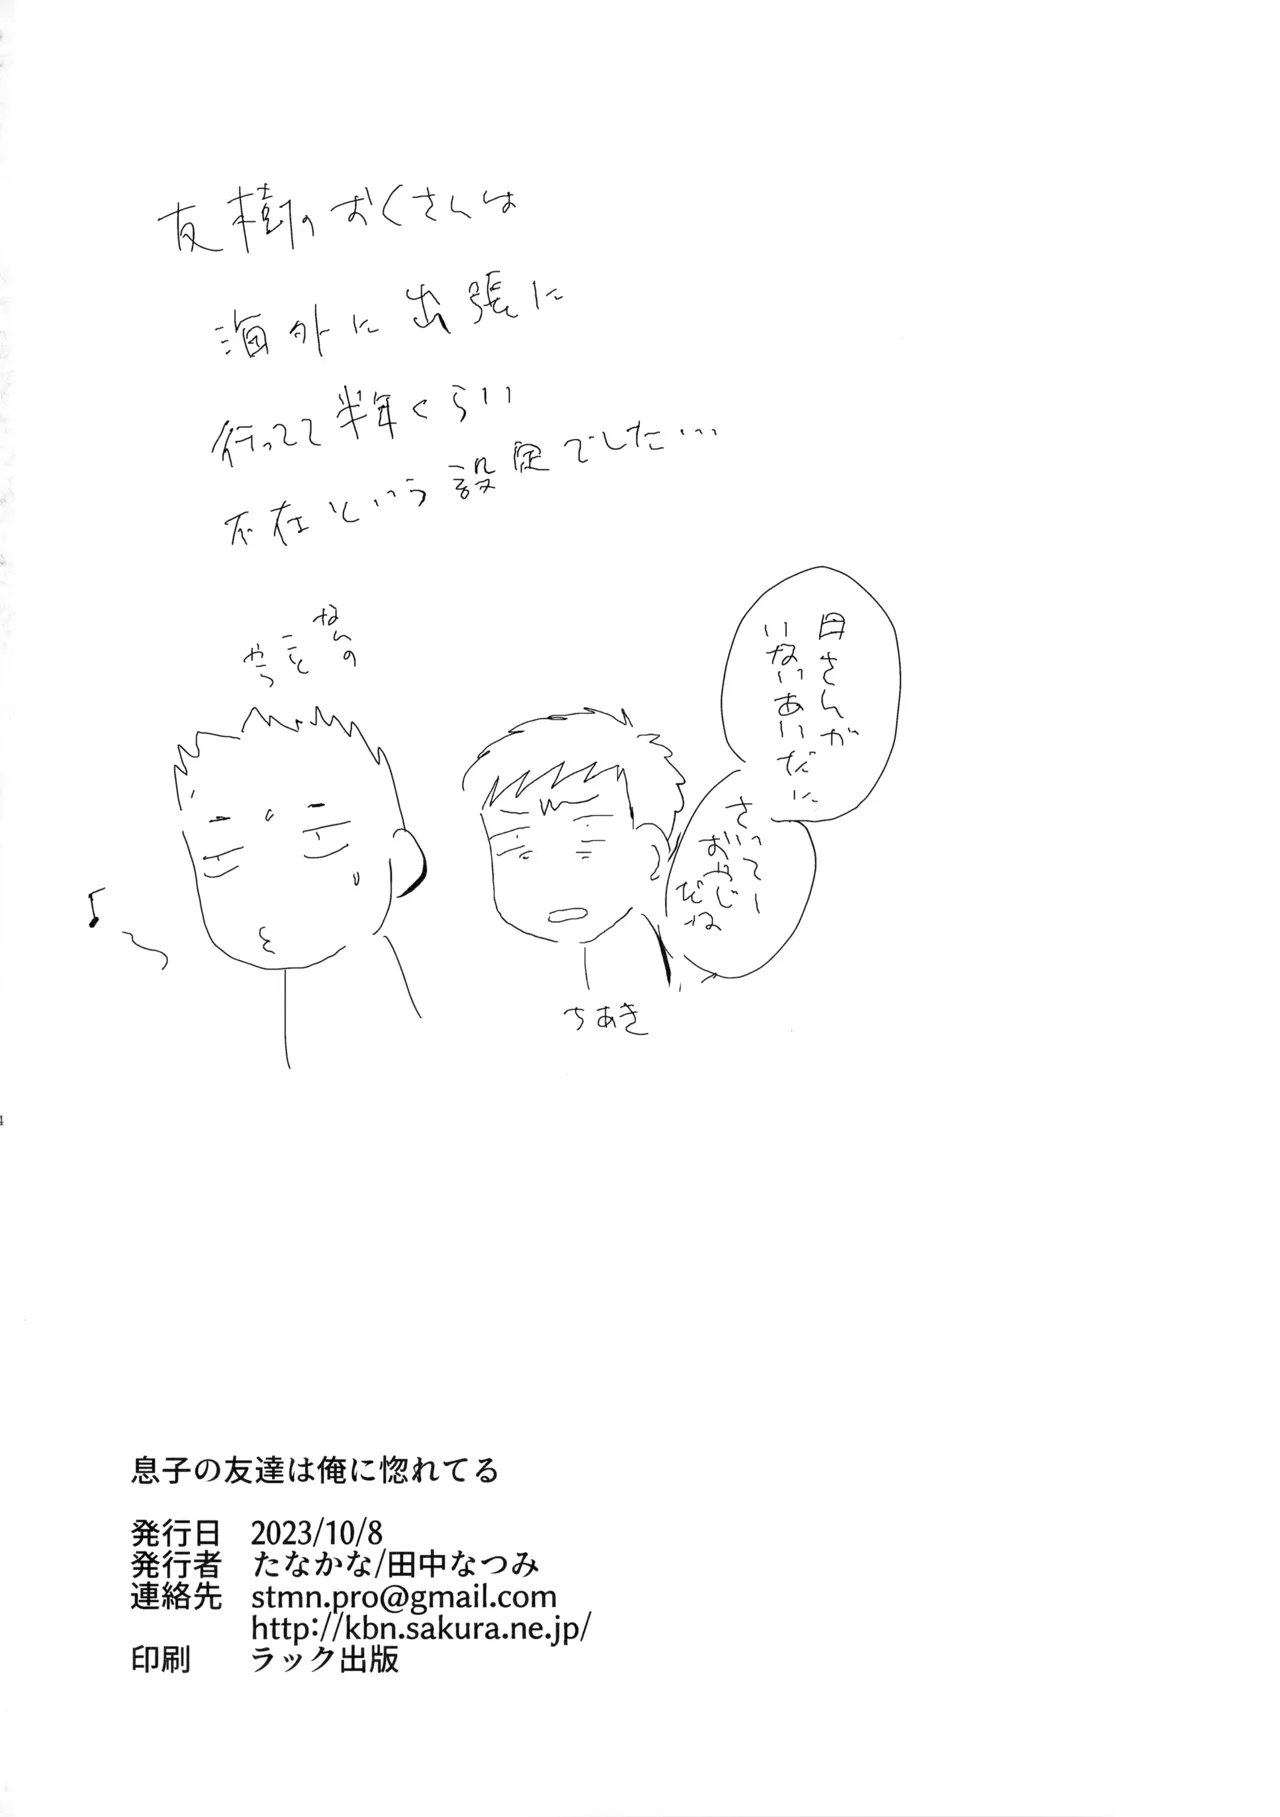 友樹のおくさんは
海外に出張に
行ってて半年くらい
不在という設定でした…
なんの
こと
やら
母さんが
いないあいだに
さいってー
おやじ
だね
ちあき
息子の友達は俺に惚れてる
発行日 2023/10/8
発行者 たなかな/田中なつみ
連絡先 stmn.pro@gmail.com
http://kbn.sakura.ne.jp/
印刷 ラック出版